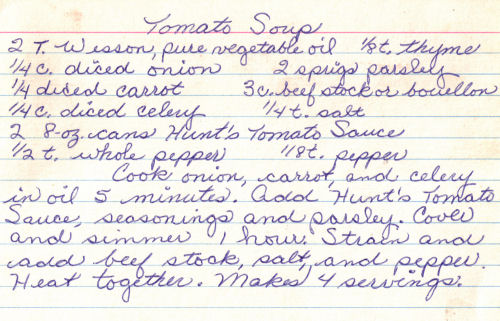 Tomato Soup
2 T. Wesson, pure vegetable oil 1/8 t. thyme
1/4 c. diced onion 2 sprigs parsley
1/4 diced carrot 3 c. beef stock or bouillon
1/4 c. diced celery 1/4 t. salt
2 8-oz. cans Hunt's Tomato Sauce
1/2 t. whole pepper 1/8 t. pepper
Cook onion, carrot, and celery
in oil 5 minutes. Add Hunt's Tomato
Sauce, seasonings and parsley. Cover
and simmer 1 hour. Strain and
add beef stock, salt, and pepper.
Heat together. Makes 4 servings.